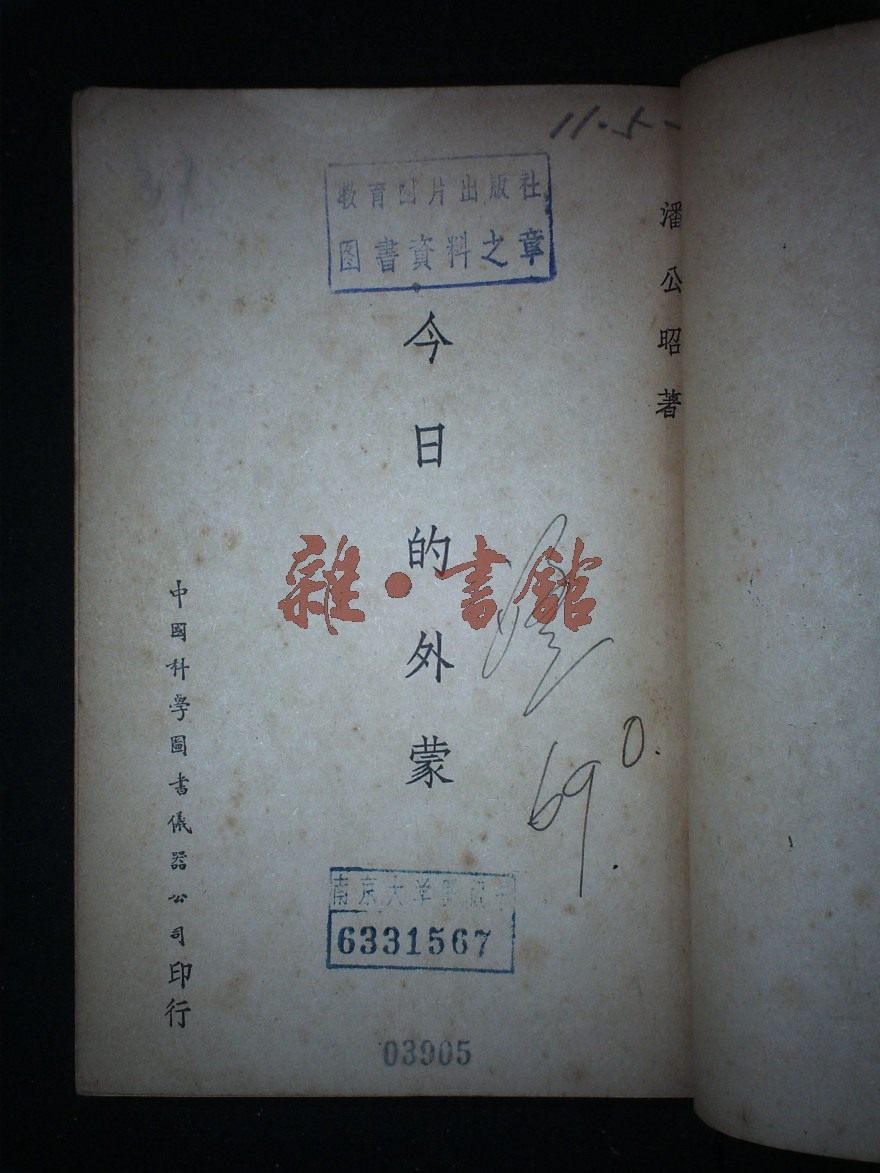 11.5-
潘公昭著
教育图片出版社
图書資料之章
今日的外蒙
雜·書館
690.
中國科學圖書儀器公司印行
南京大学
6331567
03905